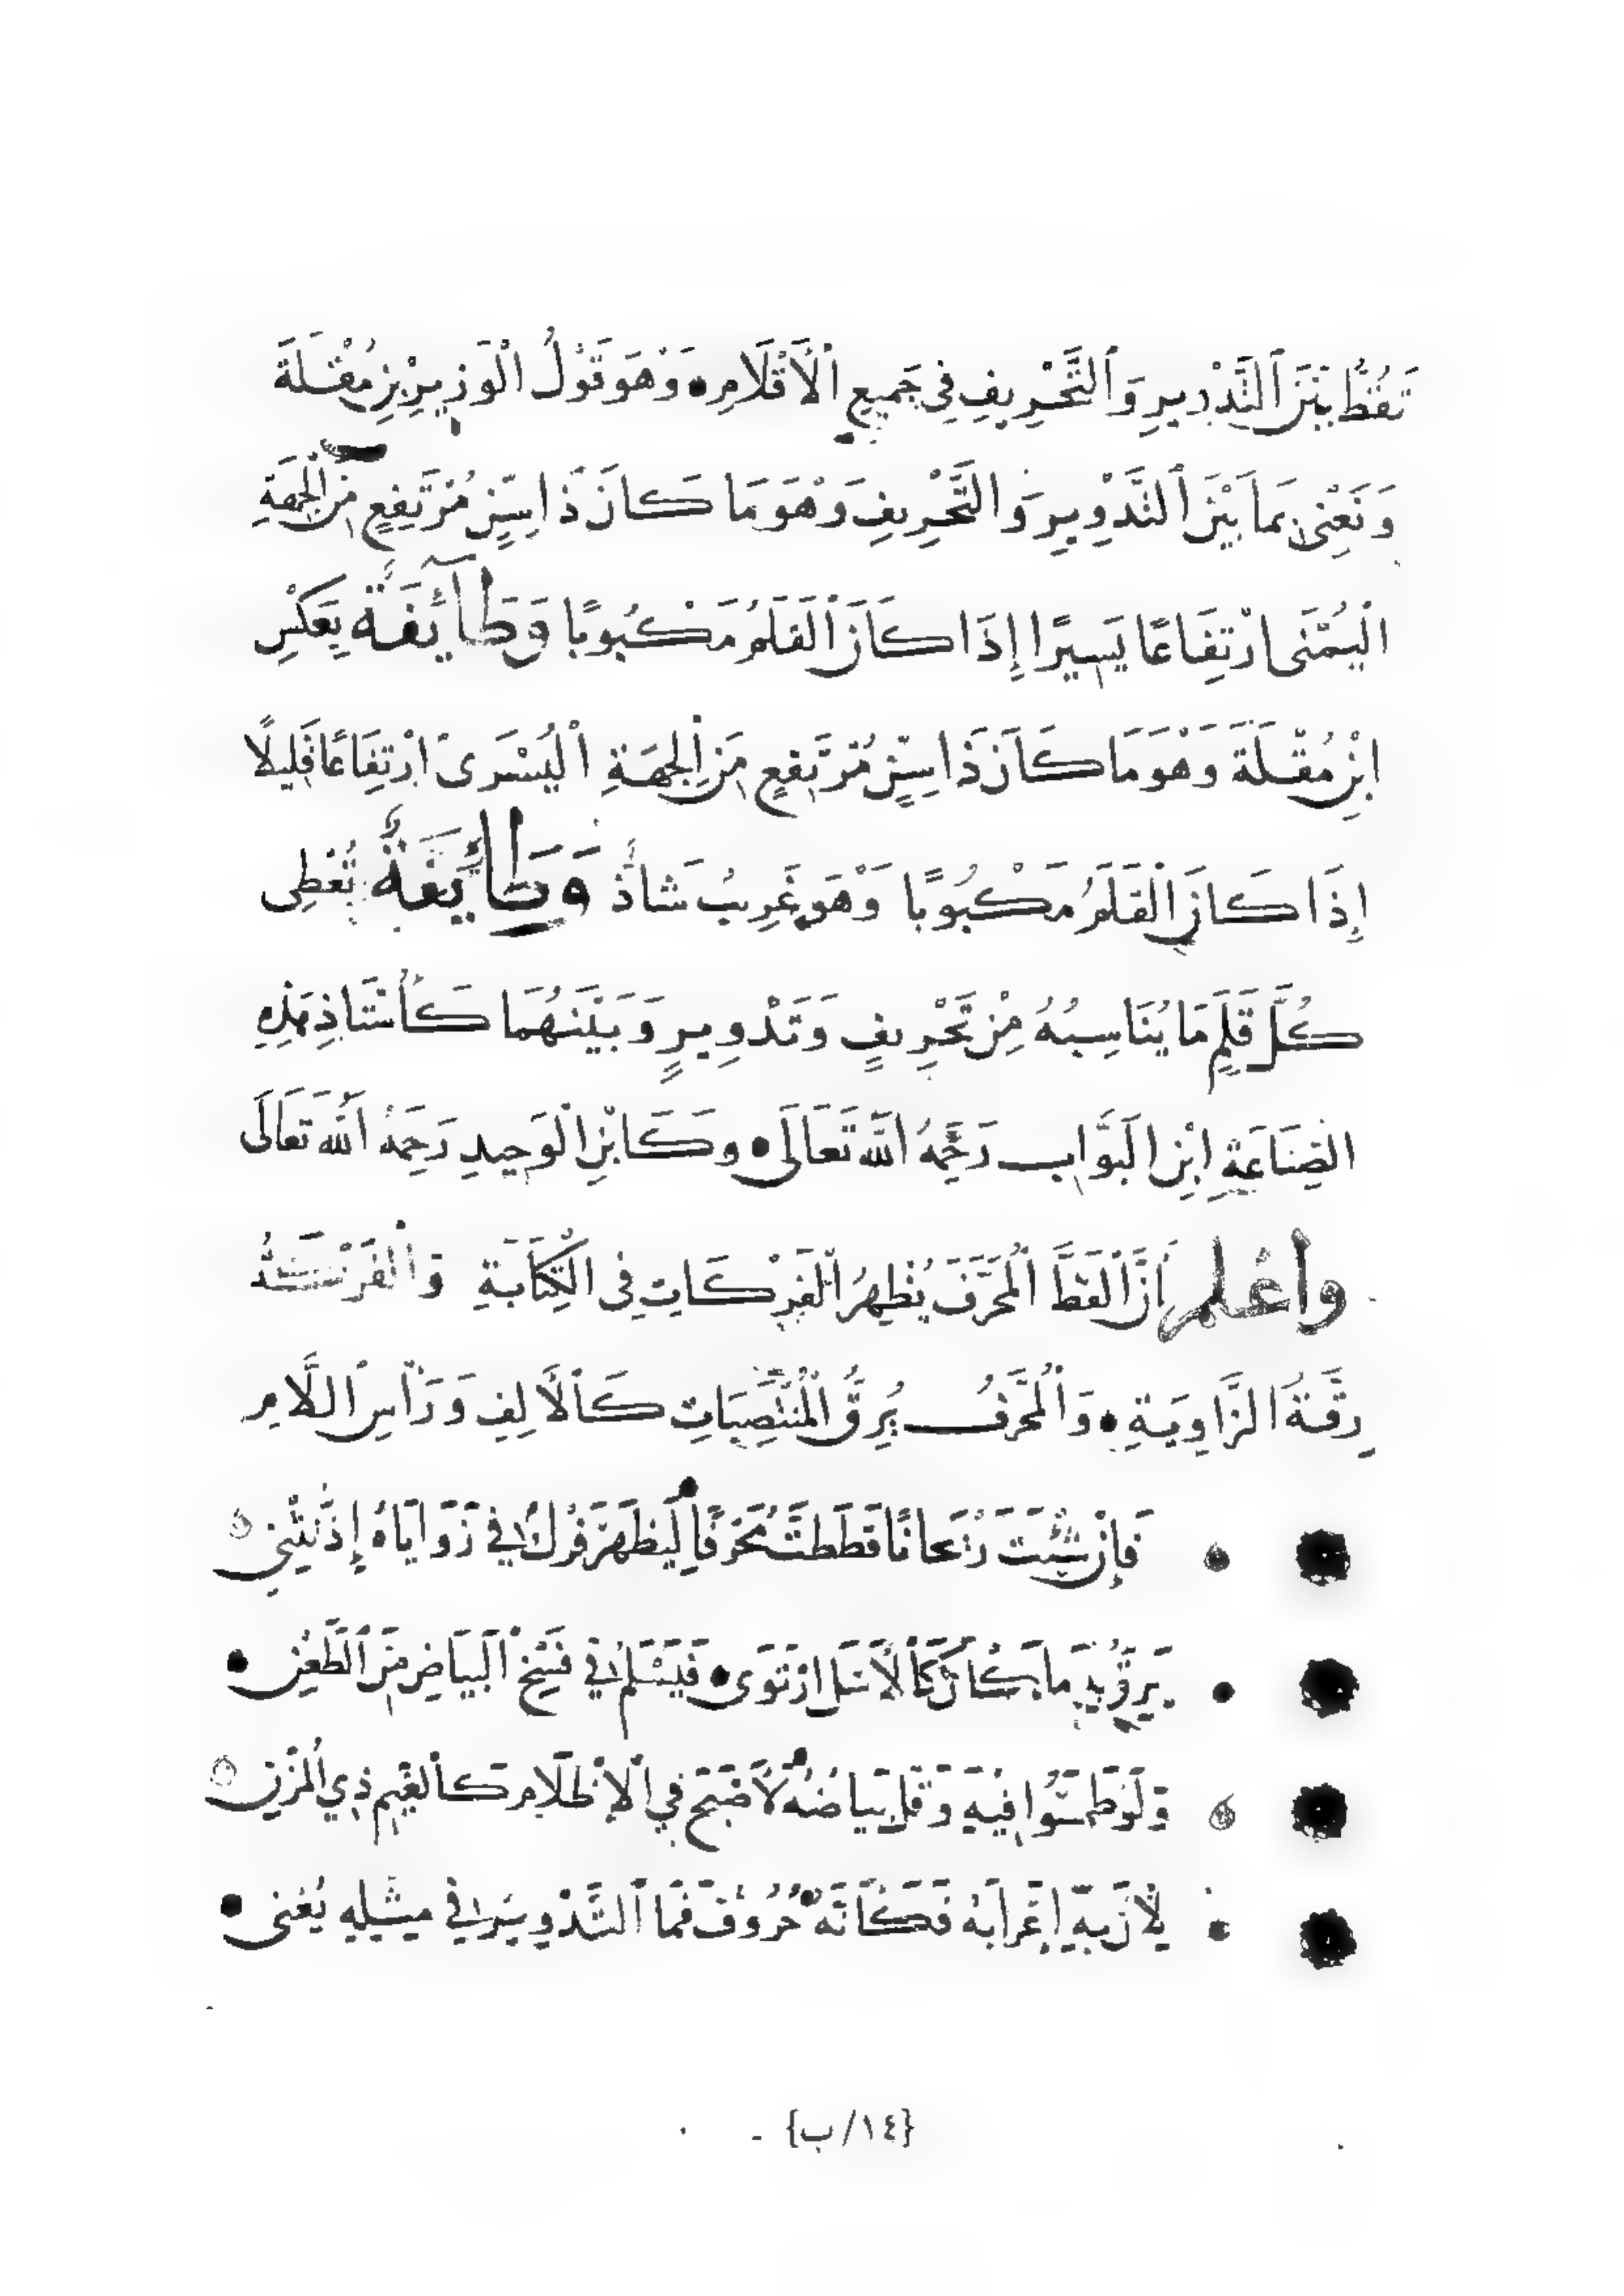 تَقُطُّ بَيْنَ ٱلتَّدْوِيرِ وَٱلتَّحْرِيفِ فِي جَمِيعِ ٱلْأَقْلَامِ • وَهْوَ قَوْلُ الْوَزِيرِ بْنِ مُقْلَةَ
وَنَعْنِي بِمَا بَيْنَ ٱلتَّدْوِيرِ وَالتَّحْرِيفِ وَهْوَ مَا كَانَ ذَا سِنٍّ مُرْتَفِعٍ مِنَ الْجِهَةِ
الْيُمْنَى ارْتِفَاعًا يَسِيرًا إِذَا كَانَ ٱلْقَلَمُ مَكْبُوبًا وَطَآئِفَةٌ بِعَكْسِ
ابْنِ مُقْلَةَ وَهْوَ مَا كَانَ ذَا سِنٍّ مُرْتَفِعٍ مِنَ الْجِهَةِ الْيُسْرَى ارْتِفَاعًا قَلِيلًا
إِذَا كَانَ الْقَلَمُ مَكْبُوبًا وَهْوَ غَرِيبٌ شَاذٌّ وَطَائِفَةٌ تُعْطِي
كُلَّ قَلَمٍ مَا يُنَاسِبُهُ مِنْ تَحْرِيفٍ وَتَدْوِيرٍ وَبَيْنَهُمَا كَأُسْتَاذِ هَذِهِ
الصِّنَاعَةِ ابْنِ الْبَوَّابِ رَحِمَهُ اللَّهُ تَعَالَى • وَكَابْنِ الْوَحِيدِ رَحِمَهُ اللَّهُ تَعَالَى
وَاعْلَمْ أَنَّ ٱلْقَطَّ ٱلْمُحَرَّفَ يُظْهِرُ ٱلْفَرْكَاتِ فِي الْكِتَابَةِ وَٱلْفَرْكَةُ
رِقَّةُ الزَّاوِيَةِ • وَٱلْمُحَرَّفُ يُرِقُّ الْمُنْتَصِبَاتِ كَٱلْأَلِفِ وَرَأْسِ اللَّامِ
فَإِنْ شِئْتَ رَيْحَانًا قَطَطْتَ مُحَرَّفًا • لِيَظْهَرَ فَرْكٌ فِي زَوَايَاهُ إِذْ تَثْنِي
يَرِقُّ بِهِ مَا كَانَ كَالْأَسَلِ ارْتَوَى • فَيَسْلَمُ فِي فَتْحِ ٱلْبَيَاضِ مِنَ ٱلطَّعْنِ •
وَلَوْ طَمَسُوا فِيهِ وَقَلَّ بَيَاضُهُ • لَأَصْبَحَ فِي ٱلْإِظْلَامِ كَٱلْغَيْمِ ذِي ٱلْمُزْنِ
لِأَنَّ بِهِ إِعْرَابَهُ فَكَأَنَّهُ • حُرُوفٌ فَمَا ٱلتَّدْوِيرُ فِي مِثْلِهِ يُغْنِي •
{١٤/ب}